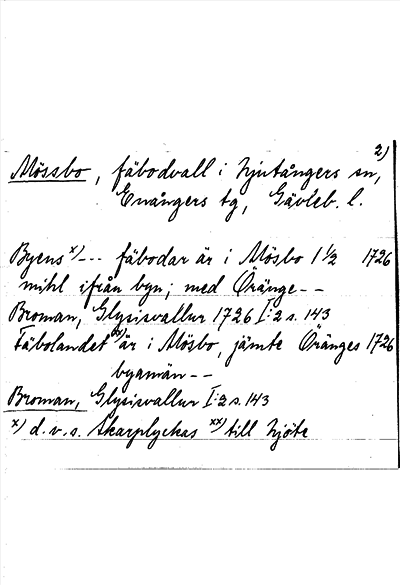 2)
Mössbo, fäbodvall i Njutångers sn,
Enångers tg, Gävleb. l.
Byens x)--- fäbodar är i Mösbo 1 1/2 1726
mihl ifrån byn; med Öränge--
Broman, Glysisvallur 1726 I:2 s. 143
Fäbolandet xx) är i Mösbo, jämte Öränges 1726
byamän--
Broman, Glysisvallur I:2 s. 143
x) d.v.s. Skarplyckas xx) till Njöte